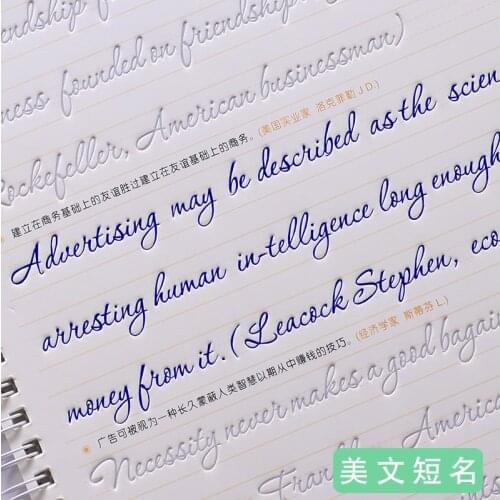 endship
ness founded on friendship
Rockefeller, American businessman)
建立在商务基础上的友谊胜过建立在友谊基础上的商务。(美国实业家 洛克菲勒 J D.)
Advertising may be described as the scien
arresting human in-telligence long enough
money from it. (Leacock Stephen, eco
广告可被视为一种长久蒙蔽人类智慧以期从中赚钱的技巧。(经济学家 斯蒂芬 L.)
Necessity never makes a good bagain
Franklin, America
美文短名